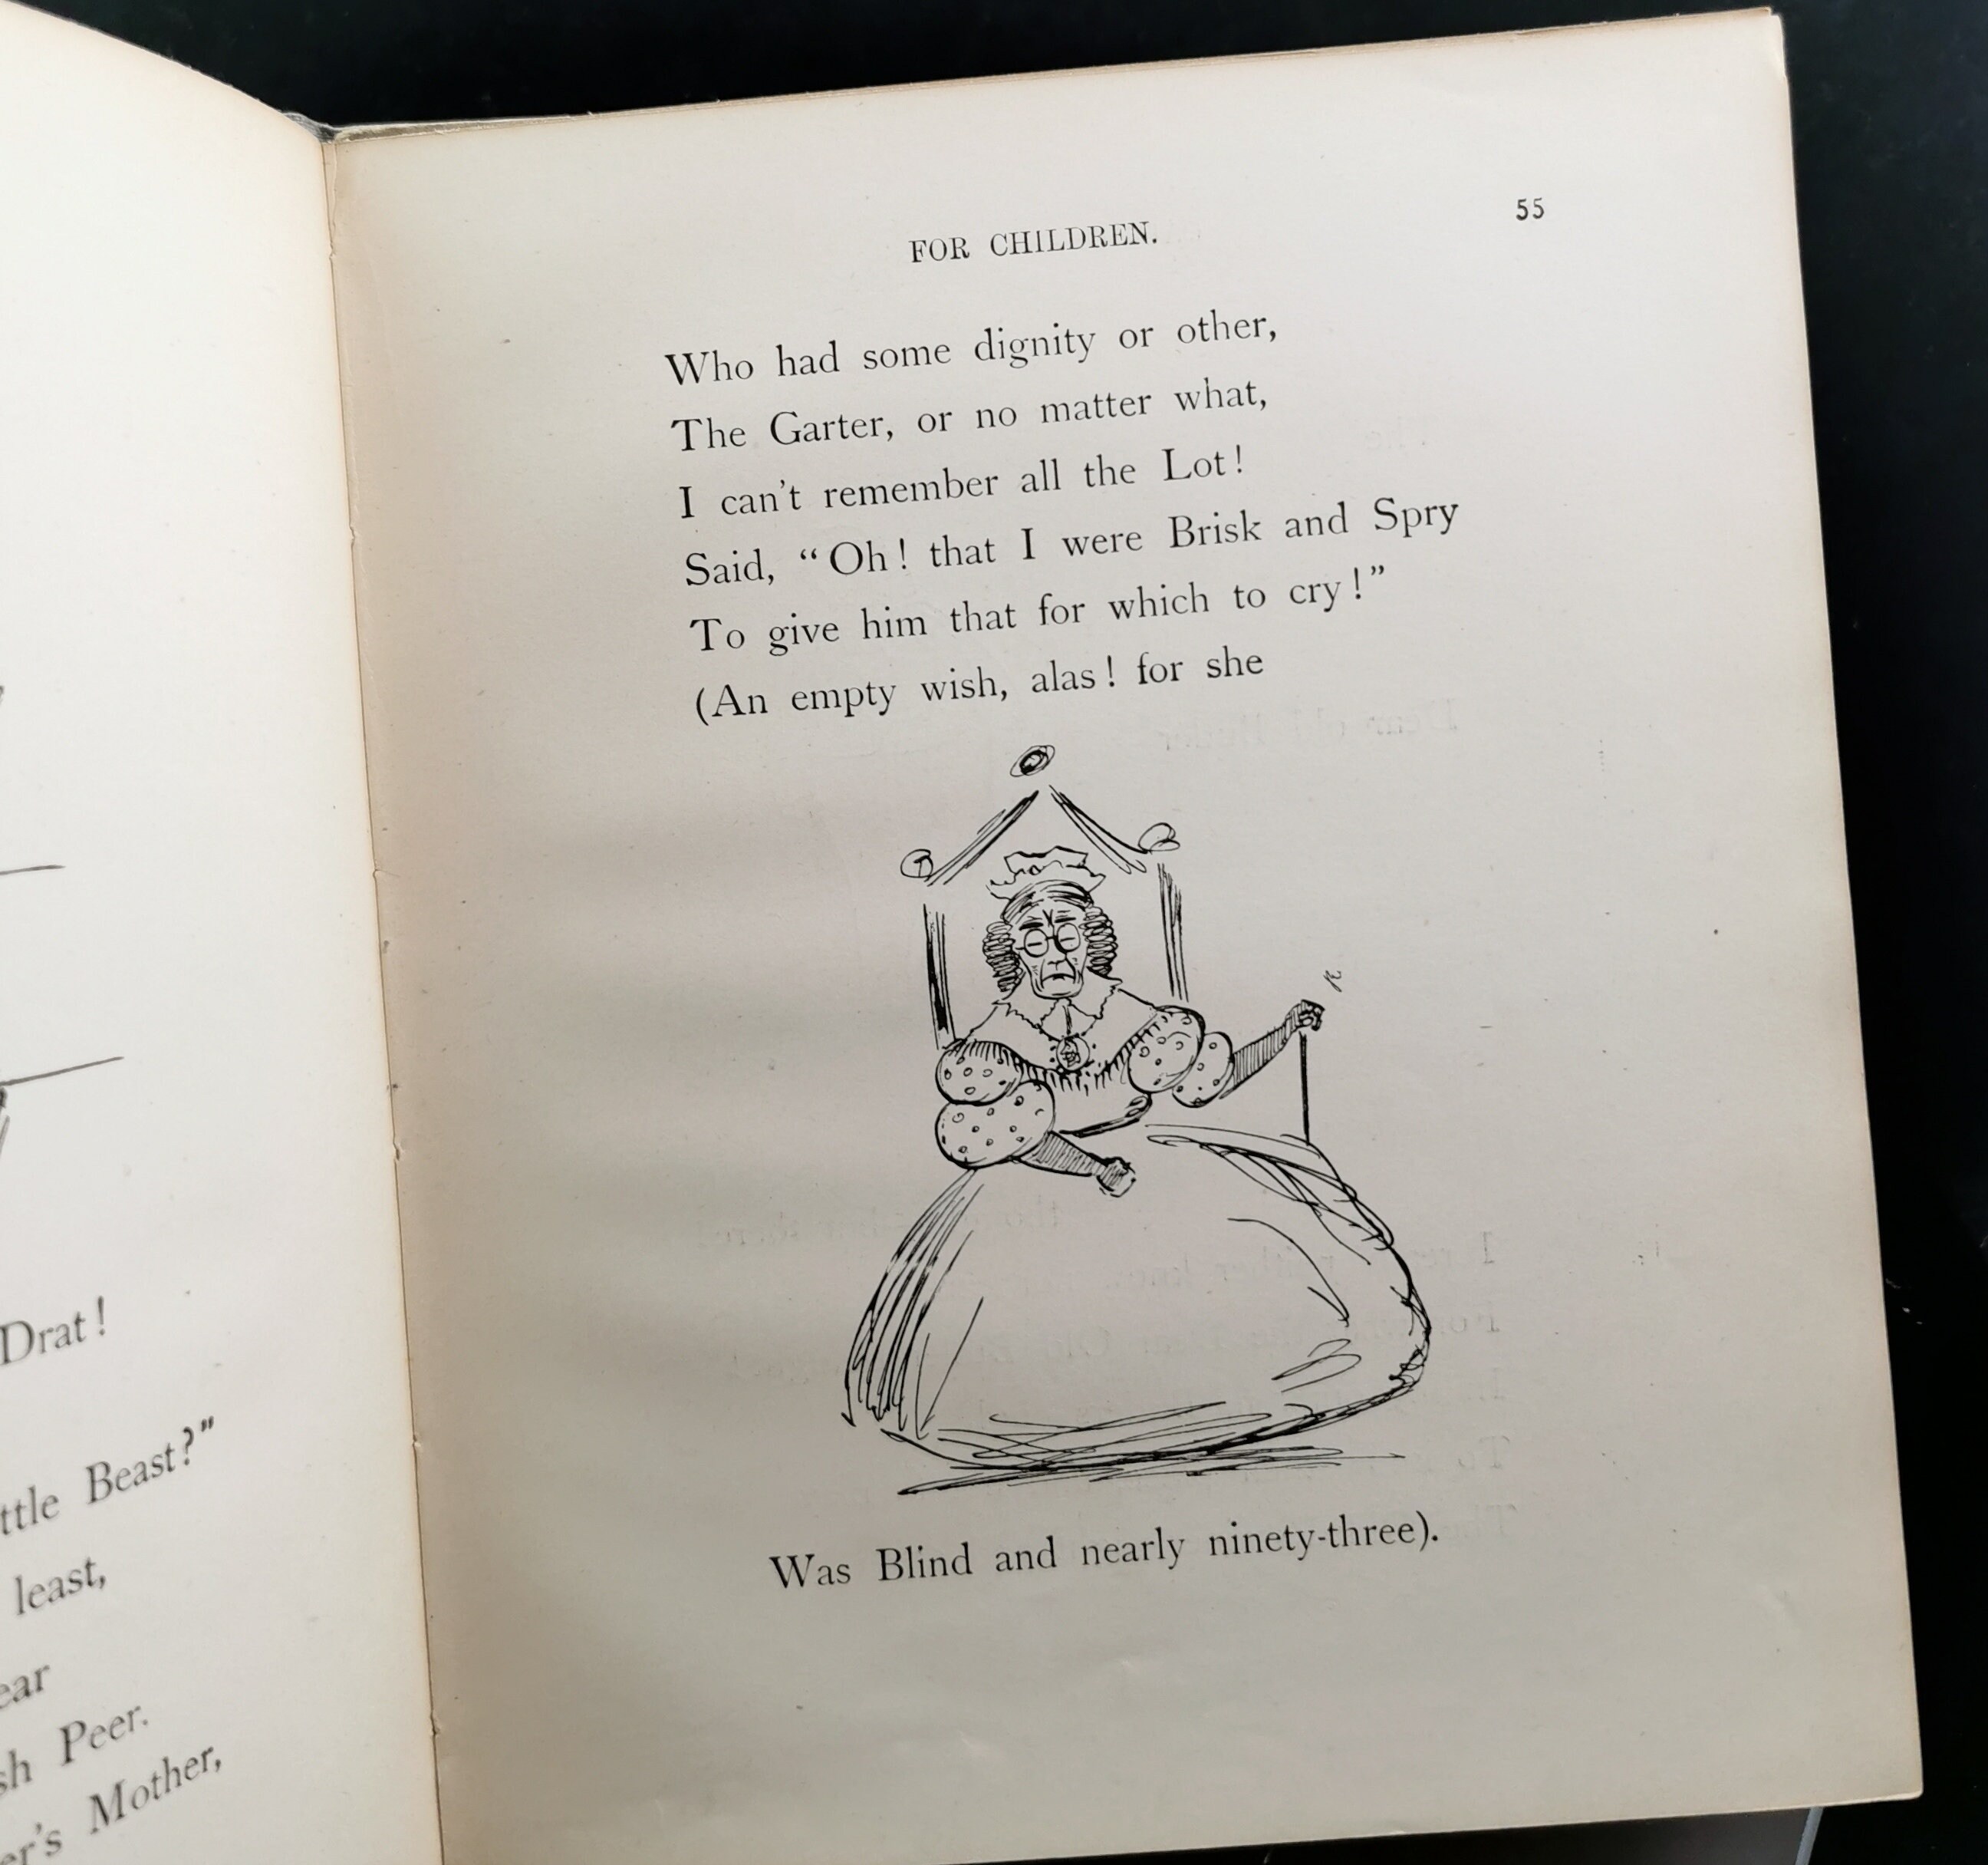 Drat!
Beast?"
least,
Peer.
Mother,
FOR CHILDREN.
55
Who had some dignity or other,
The Garter, or no matter what,
I can't remember all the Lot!
Said, “Oh! that I were Brisk and Spry
To give him that for which to cry!”
(An empty wish, alas! for she
Was Blind and nearly ninety-three).